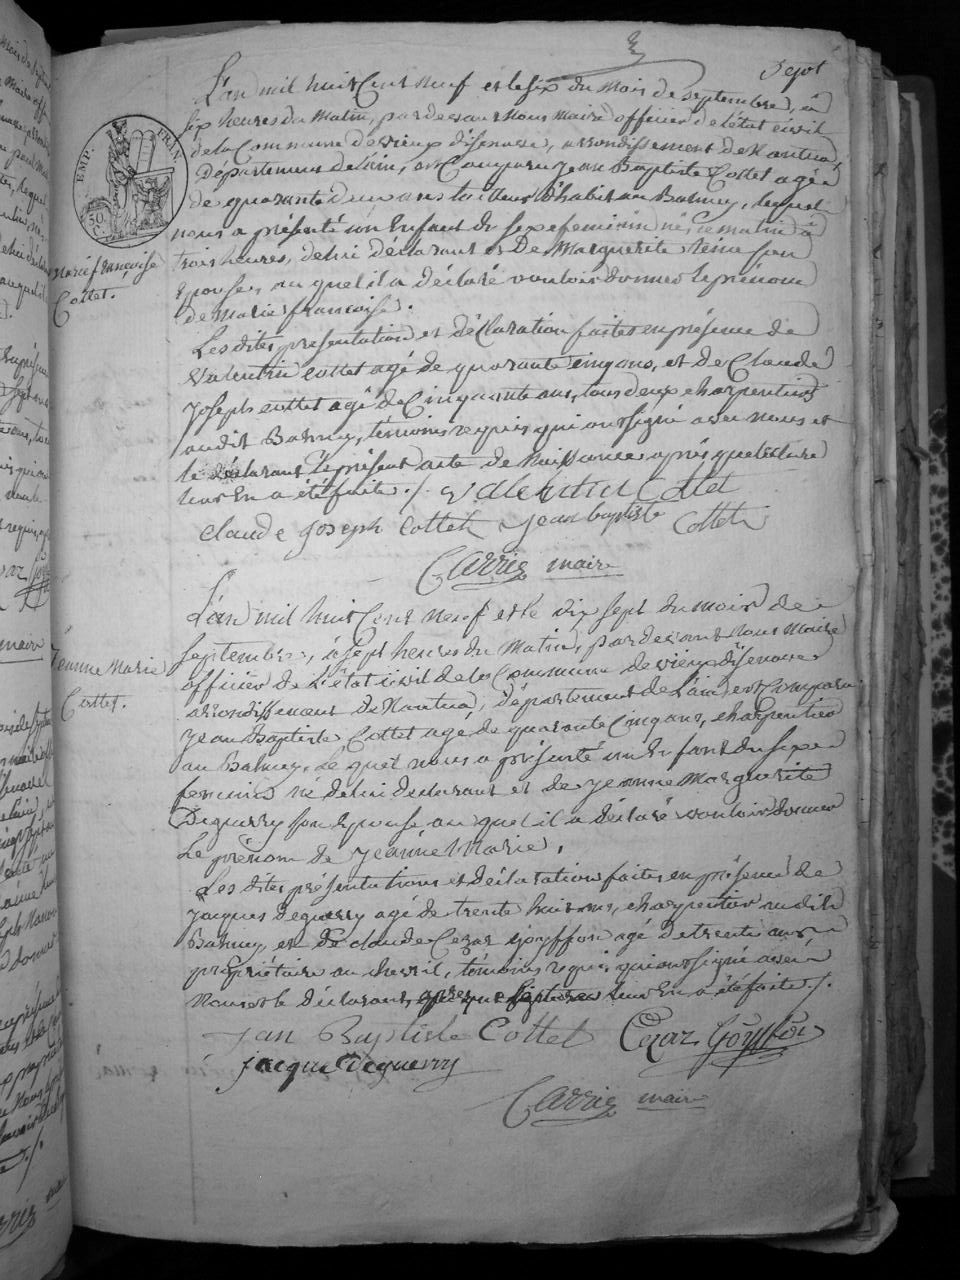 Sept
L'an mil huit Cent neuf et le six du mois de septembre, à
six heures du Matin, pardevant Nous Maire officier de létat civil
de la Commune de vieux disenave, arrondissement de Nantua,
Département de lain, est Comparu Jean Baptiste Cottet agé
de quarante deux ans tailleur D'habits au Balmey, lequel
nous a présenté un Enfant de sexe feminin né ce matin à
trois heures, de lui déclarant et De Marguerite Reine son
Epouse, au quel il a déclaré vouloir donner le prénom
de Marie francoise.
EMP. FRAN.
50 C.
Marie francoise
Cottet.
Les dites presentation et déclaration faites en présence de
Valentin Cottet agé de quarante cinq ans, et de Claude
Joseph Cottet agé de Cinquante ans, tous deux charpentiers
audit Balmey, témoins requis qui ont signé avec nous et
le déclarant le présent acte de Naissance après que lecture
leur En a été faite ./. Valentin Cottet
Claude Joseph Cottet Jean baptiste Cottet
Carrier maire
L'an mil huit Cent neuf et le dix sept du mois de
septembre, à sept heures du Matin, pardevant Nous Maire
officier de L'état civil de la Commune de vieux disenave
arrondissement de Nantua, département de L'ain, est Comparu
Jean Baptiste Cottet agé de quarante Cinq ans, charpentier
au Balmey, Le quel nous a présenté un Enfant du sexe
feminin né de lui declarant et de Jeanne Marguerite
Deguerry son Epouse au quel il a déclaré vouloir donner
Le prénom de Jeanne Marie,
Jeanne Marie
Cottet.
Les dites présentations et déclaration faites en présence de
Jacques deguerry agé de trente huit ans, charpentier audit
Balmey, et De claude Cezar Goyffon agé de trente ans
propriétaire au chevril, témoins requis qui ont signé avec
Nous et le déclarant, après que lecture leur En a été faite ./.
Jan Baptiste Cottet Cezar Goyffon
Jacque Deguerry
Carrier maire